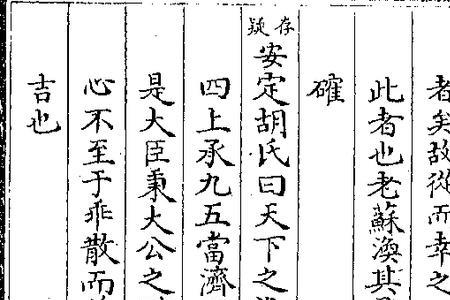 者矣故從而幸之
此者也老蘇渙其
確
存疑
安定胡氏曰天下之
四上承九五當濟
是大臣秉大公之
心不至于乖散而
吉也